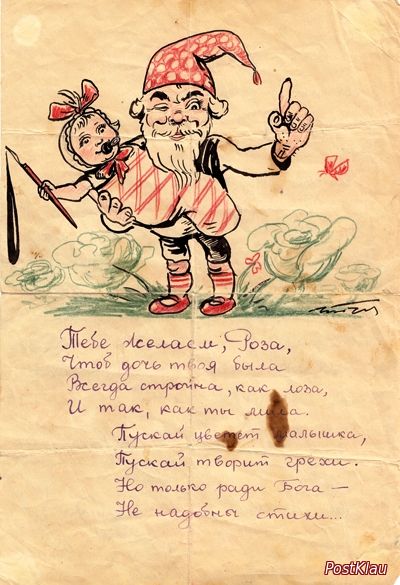 Тебе желаем, Роза,
Чтоб дочь твоя была
Всегда стройна, как лоза,
И так, как ты мила.
Пускай цветет малышка,
Пускай творит грехи.
Но только ради Бога —
Не надобны стихи...
PostKlau